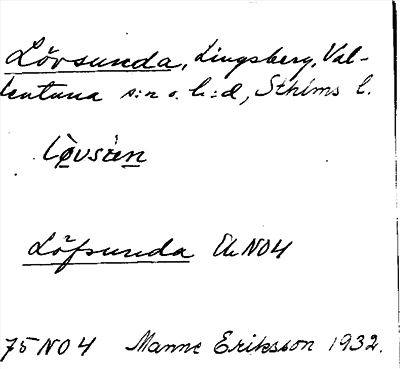 Lövsunda, Lingsberg, Val-
lentuna s:n o. h:d, Sthlms l.
Löfsunda Ek NO4
75 NO 4 Manne Eriksson 1932.